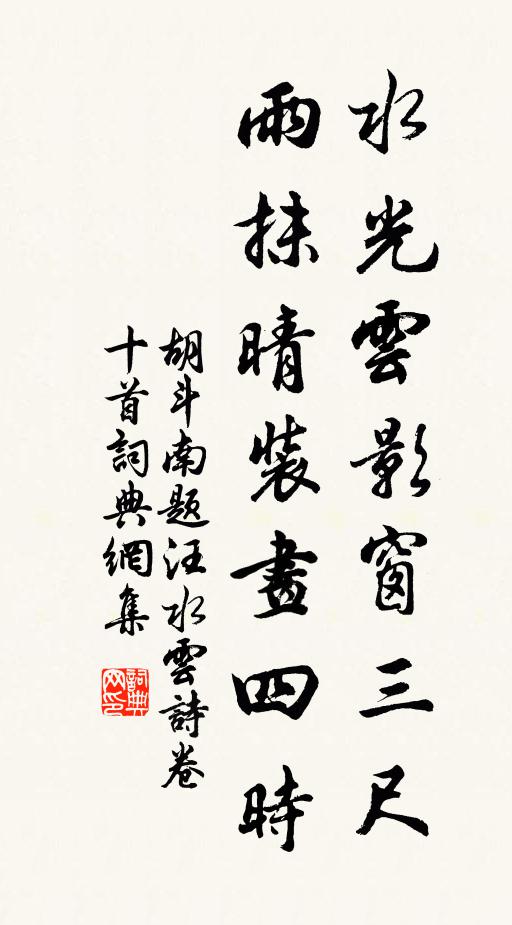 水光雲影窗三尺
雨抹晴裝畫四時
胡斗南题汪水雲詩卷
十首詞典網集
詞典网印